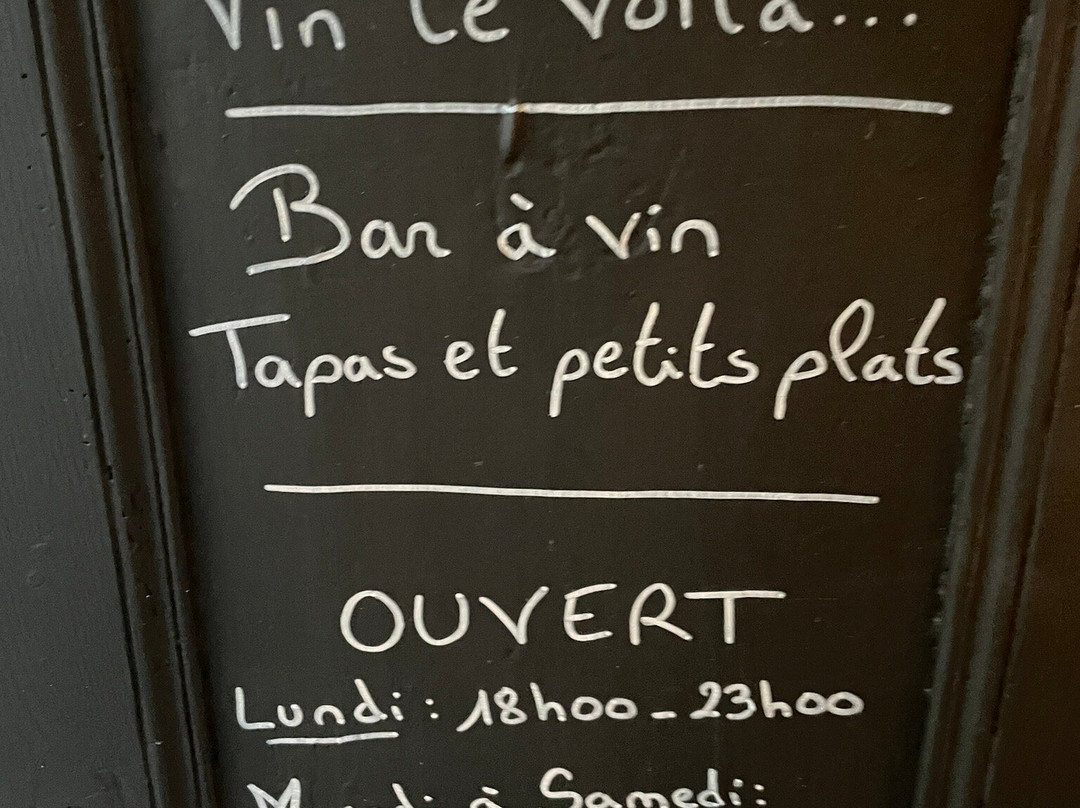 Vin le voilà...
Bar à vin
Tapas et petits plats
OUVERT
Lundi : 18h00 - 23h00
Mardi à Samedi :